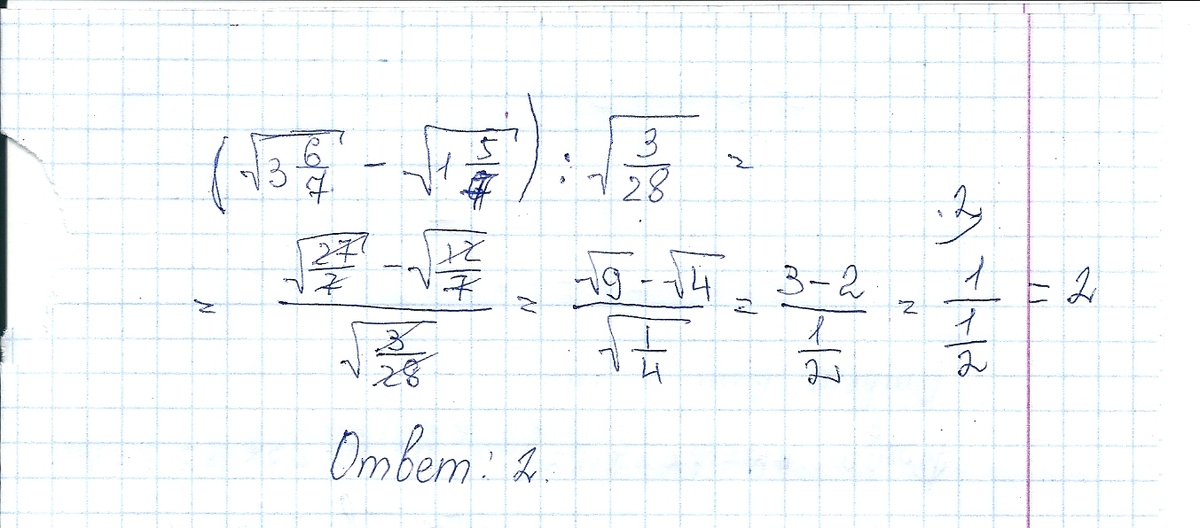 (√(3 6/7) - √(1 5/7)) : √(3/28) =
= (√(27/7) - √(12/7)) / √(3/28) = (√9 - √4) / √(1/4) = (3 - 2) / (1/2) = 1 / (1/2) = 2
Ответ: 2.